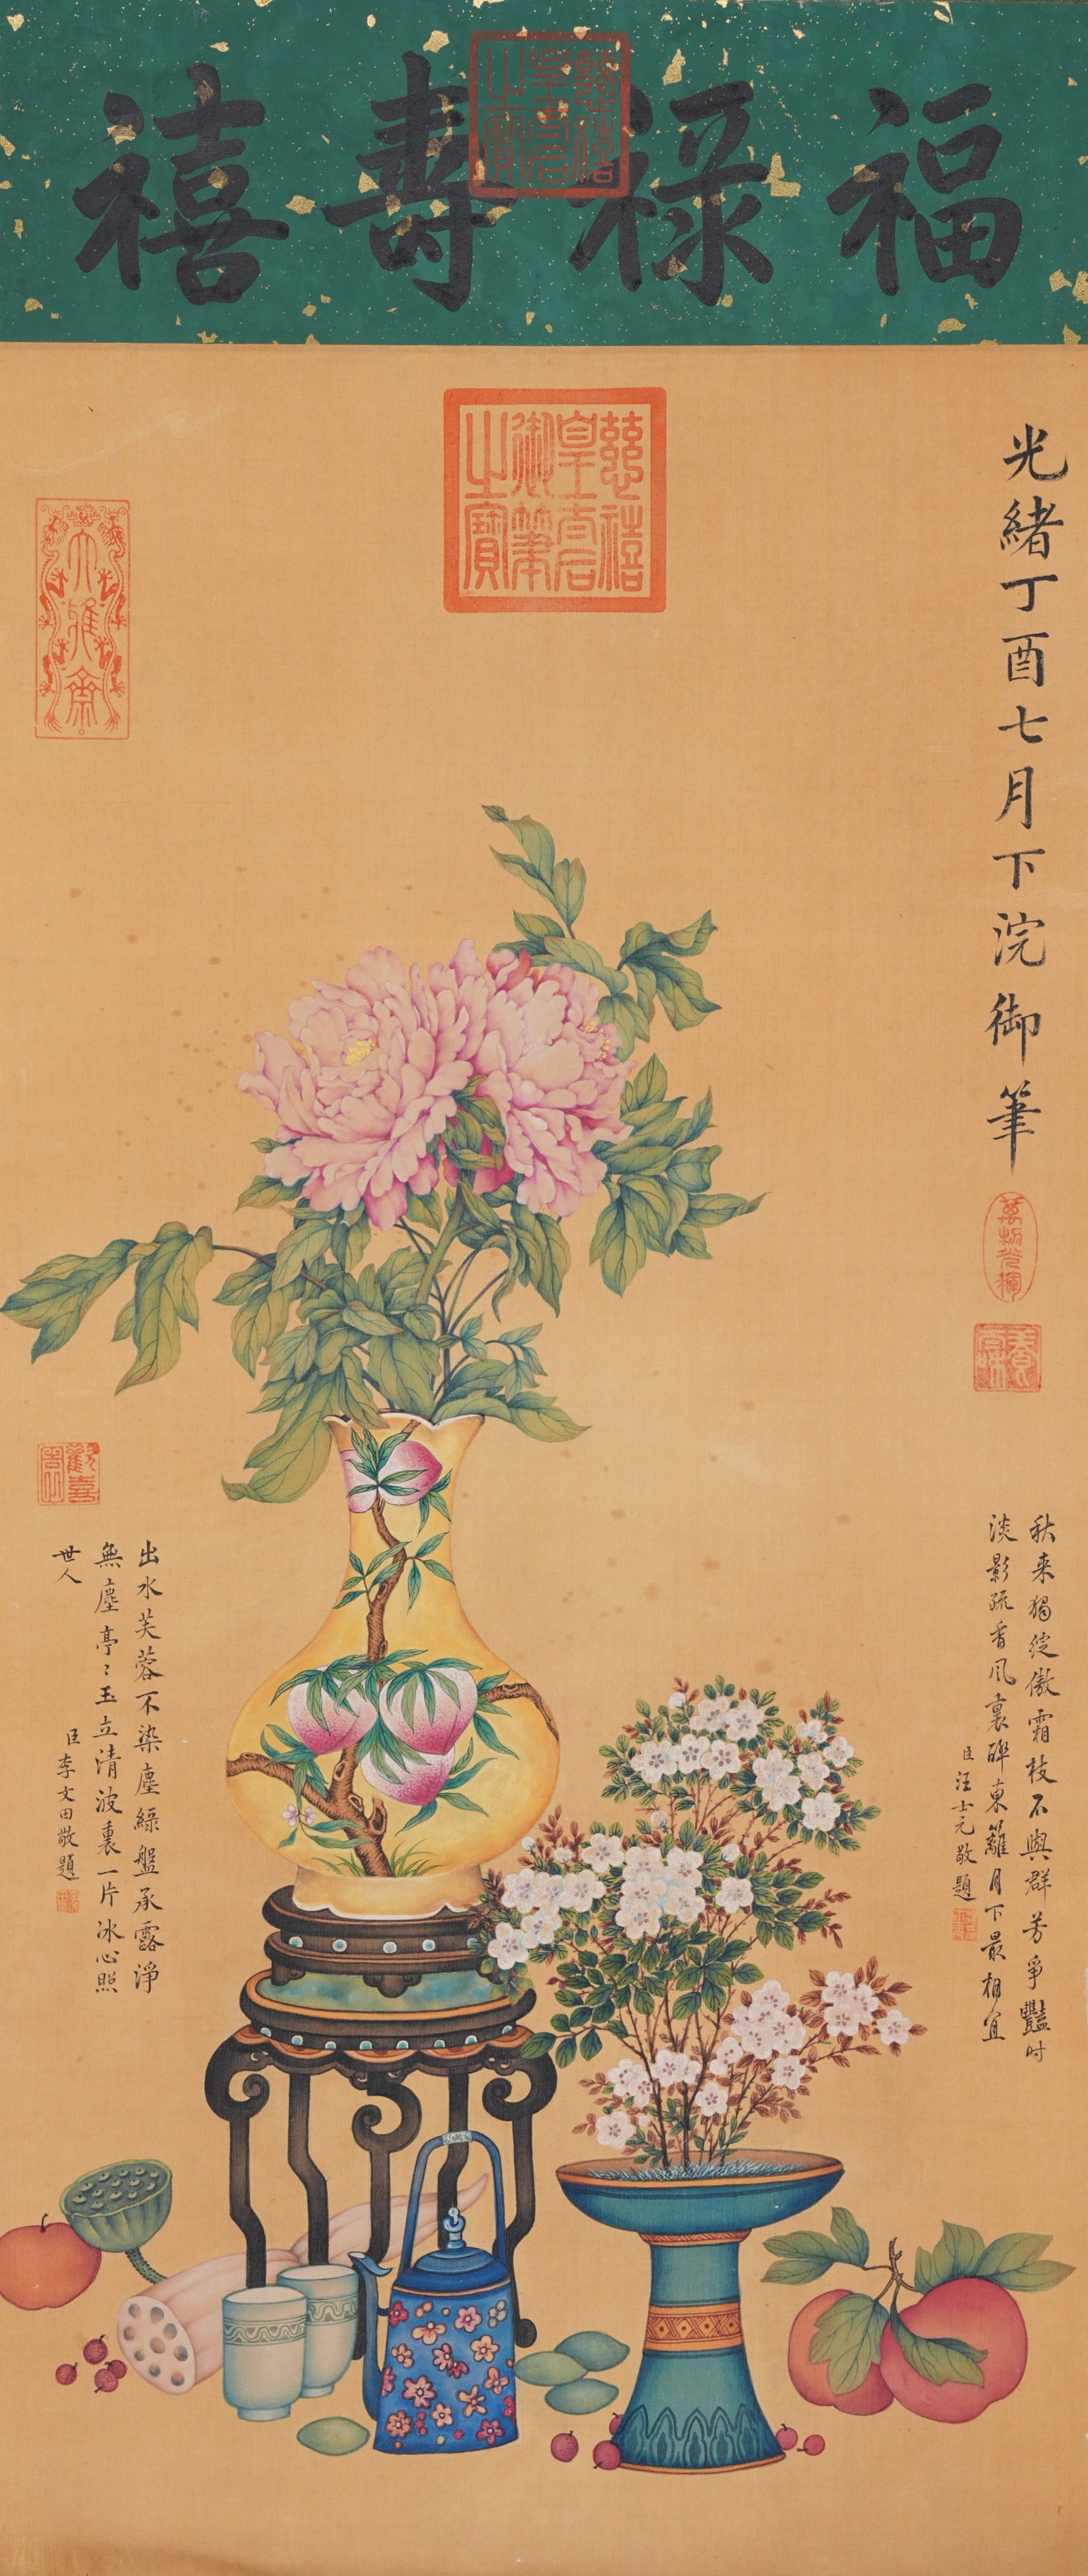 福祿壽禧
慈禧皇太后之寶
慈禧皇太后御筆之寶
光緒丁酉七月下浣御筆
萬物光輝
大雅齋
秋来獨綻傲霜枝不與群芳爭豔时
淡影疏香风裏醉東籬月下最相宜
臣汪士元敬題
出水芙蓉不染塵綠盤承露淨
無塵亭〻玉立清波裏一片冰心照
世人
臣李文田敬題